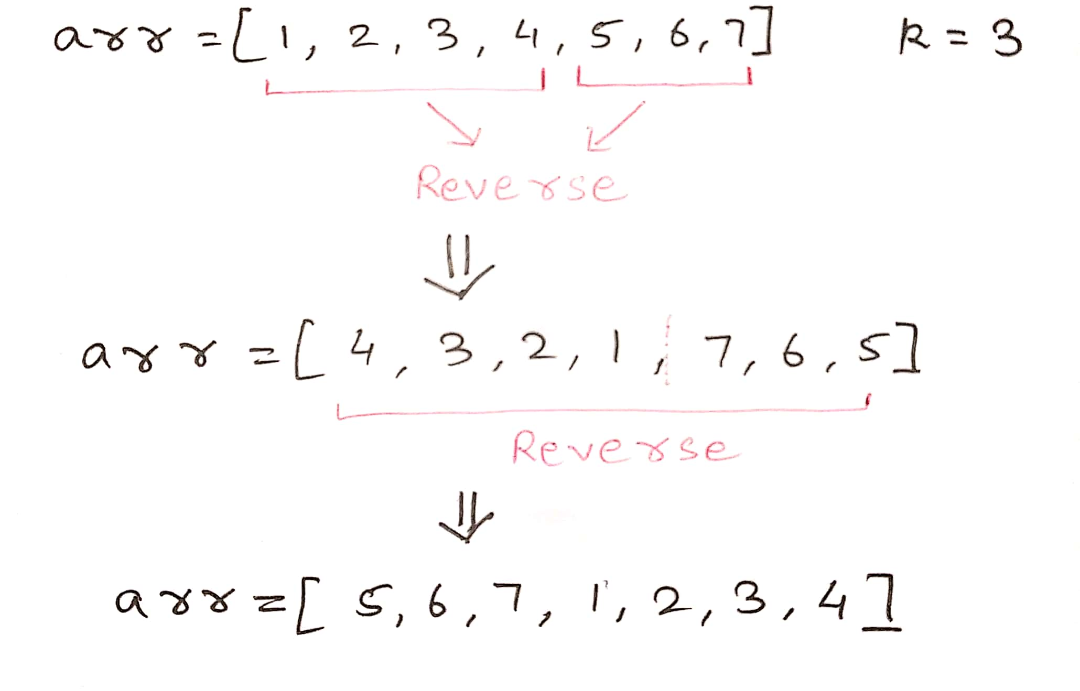 arr = [1, 2, 3, 4, 5, 6, 7] k = 3
Reverse
arr = [4, 3, 2, 1, 7, 6, 5]
Reverse
arr = [5, 6, 7, 1, 2, 3, 4]